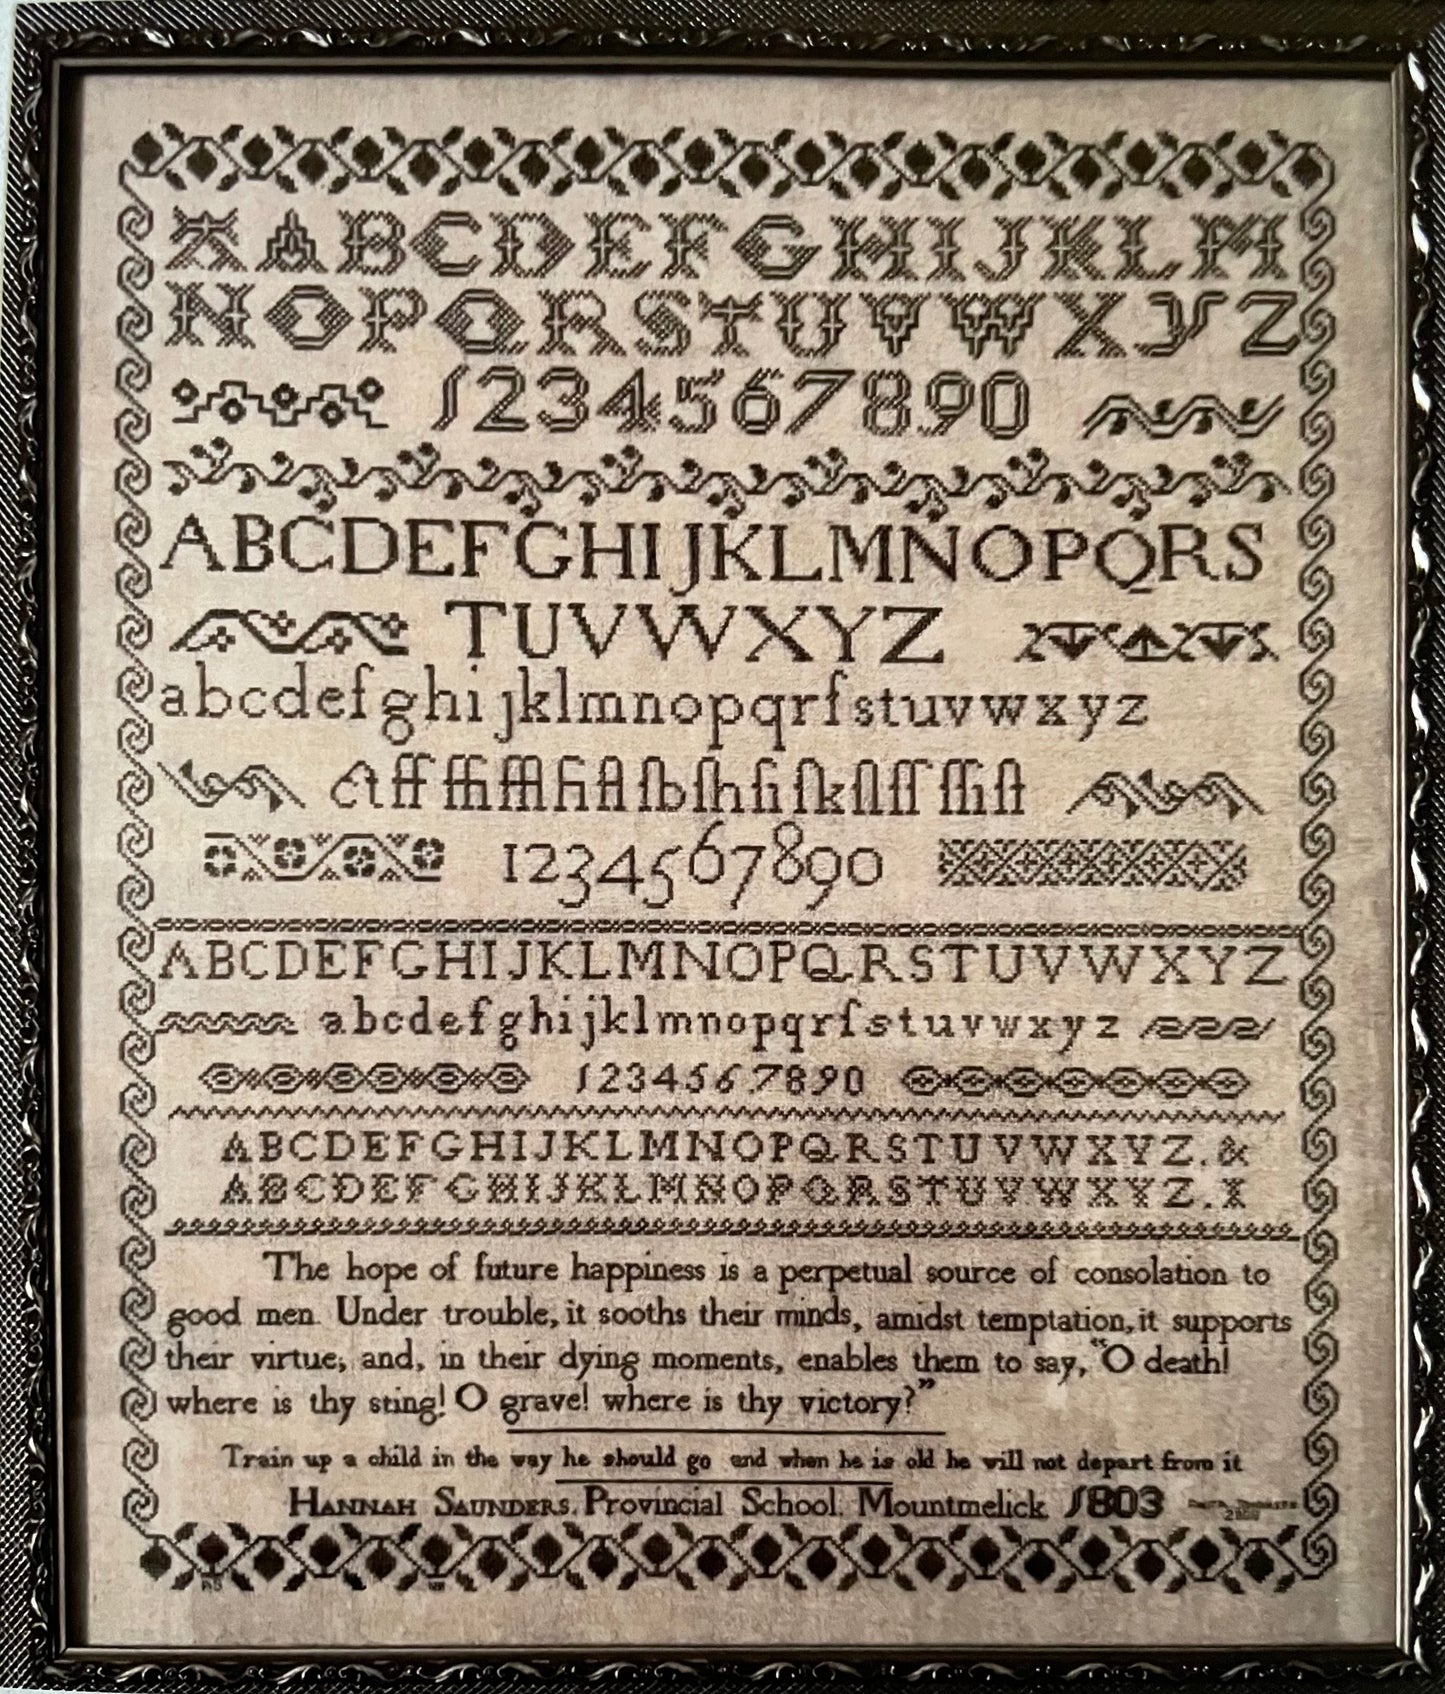 A A B C D E F G H I J K L M
N O P Q R S T U V W X Y Z
1 2 3 4 5 6 7 8 9 0
A B C D E F G H I J K L M N O P Q R S
T U V W X Y Z
a b c d e f g h i j k l m n o p q r ſ s t u v w x y z
ct ff ffi ffl fi fl ſb ſh ſi ſk ſl ſſ ſſi ſt
1 2 3 4 5 6 7 8 9 0
A B C D E F G H I J K L M N O P Q R S T U V W X Y Z
a b c d e f g h i j k l m n o p q r ſ s t u v w x y z
1 2 3 4 5 6 7 8 9 0
A B C D E F G H I J K L M N O P Q R S T U V W X Y Z . &
A B C D E F G H I J K L M N O P Q R S T U V W X Y Z . I
The hope of future happiness is a perpetual source of consolation to
good men. Under trouble, it sooths their minds, amidst temptation, it supports
their virtue; and, in their dying moments, enables them to say, “O death!
where is thy sting! O grave! where is thy victory?”
Train up a child in the way he should go and when he is old he will not depart from it
HANNAH SAUNDERS. Provincial School. Mountmelick. 1803